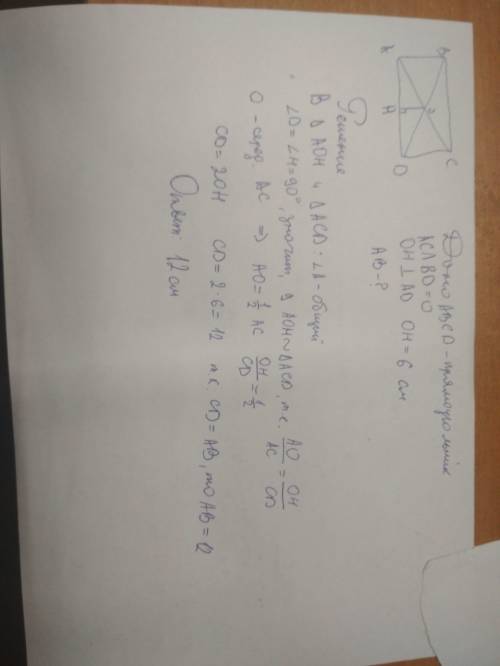 A
B
H
h
O
D
C
Дано ABCD - прямоугольник
AC∩BD=O
OH⊥AD OH=6 см
AB-?
Решение
В △ AOH и △ ACD: ∠A - общий
∠D=∠H=90°, значит, △ AOH~△ACD, т.е. AO/AC = OH/CD
O - серед. AC ⇒ AO=1/2 AC OH/CD=1/2
CD=2OH CD=2·6=12 т.к. CD=AB, то AB=12
Ответ 12 см